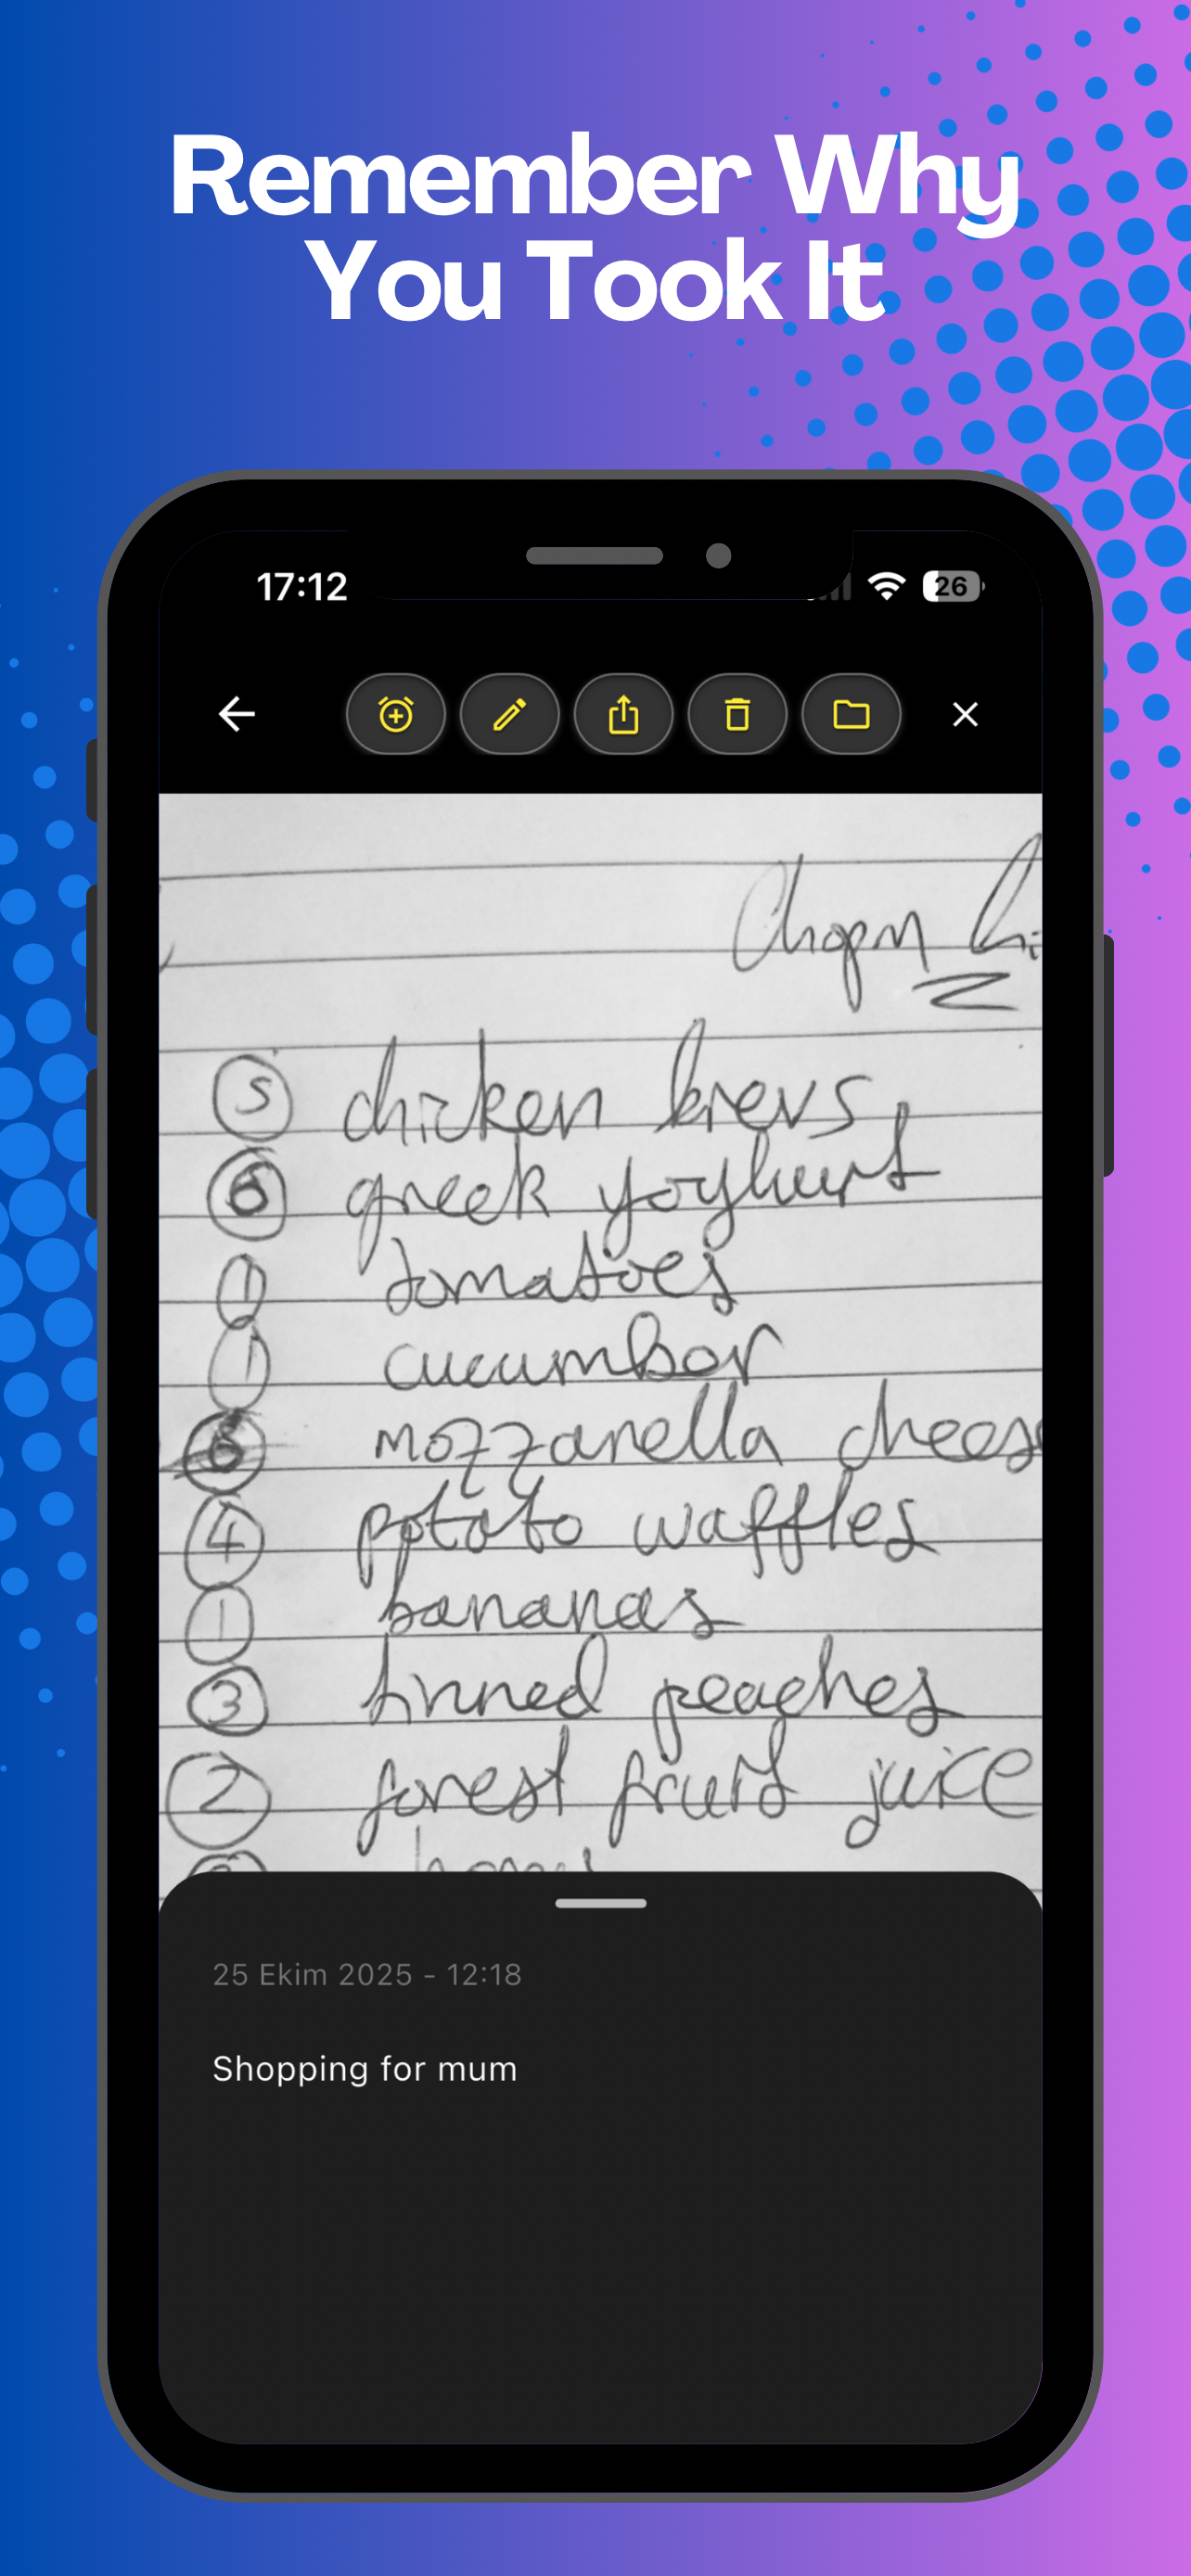 Remember Why
You Took It
17:12
26
5 chicken kievs
6 greek yoghurt
1 tomatoes
1 cucumber
6 mozzarella cheese
4 potato waffles
1 bananas
3 tinned peaches
2 forest fruits juice
25 Ekim 2025 - 12:18
Shopping for mum